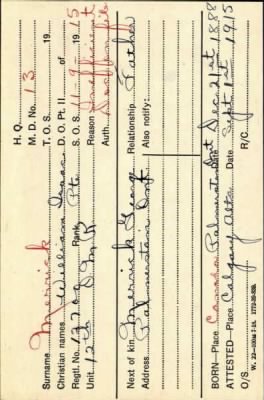 H. Q.
M. D. No. 13
Surname Merrick T. O. S. 19
Christian names William Isaac D. O. Pt. II of 19
Regtl. No. Rank Pte S. O. S. 11-9- 1915
Unit 12th C.M.R. Reason Inefficient
Auth.
Next of kin Merrick George Relationship Father
Address Palmerston Ont Also notify:
BORN—Place Canada Palmerston Ont Date Dec. 21st 1888
ATTESTED—Place Calgary Alta Date Sept 1st 1915
O/S R/C.